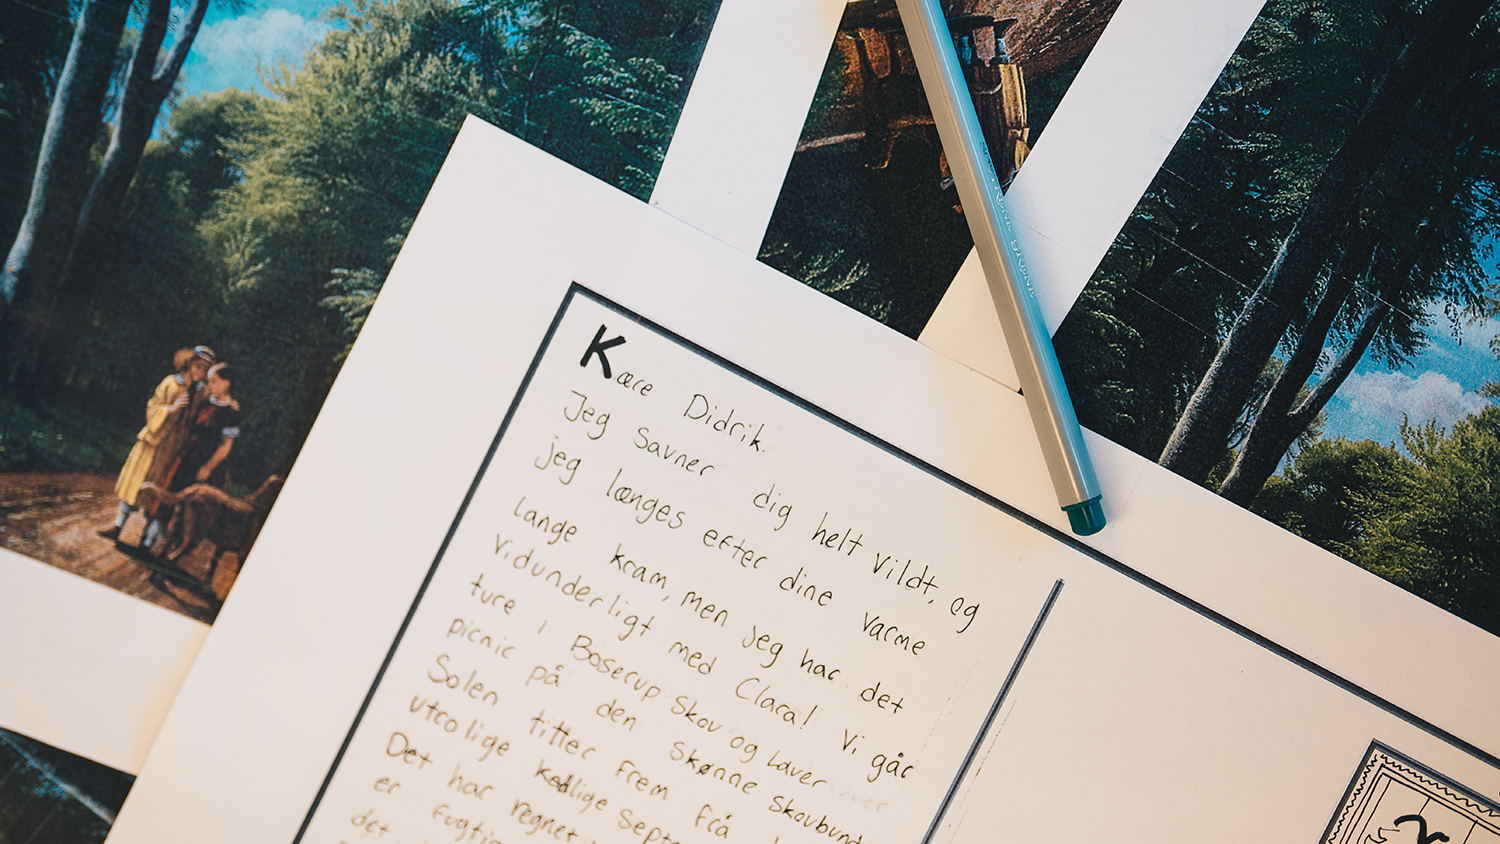 Kære Didrik.
Jeg savner dig helt vildt, og
jeg længes efter dine varme
lange kram, men jeg har det
vidunderligt med Clara! Vi går
ture i Boserup Skov og laver
picnic på den skønne skovbund
Solen titter frem fra
utrolige
Det har regnet
er
det